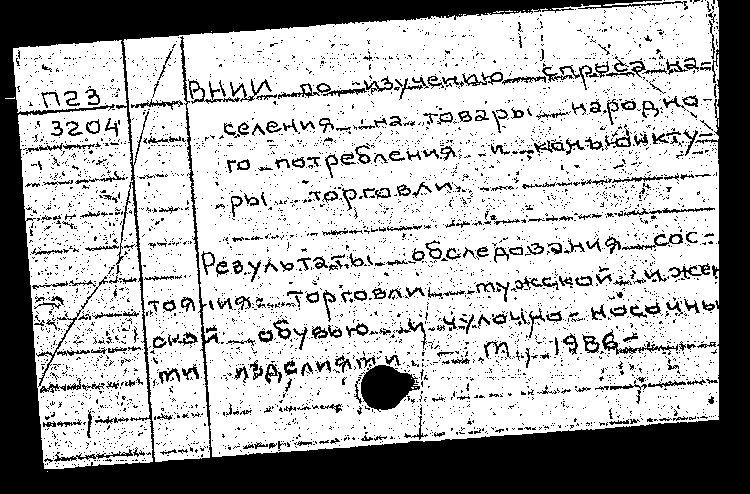 П23
3204
ВНИИ по изучению спроса на-
селения на товары народно-
го потребления и конъюнкту-
ры торговли.
Результаты обследования сос-
тояния торговли мужской и жен
ской обувью и чулочно-носочны
ми изделиями. - М, 1986-